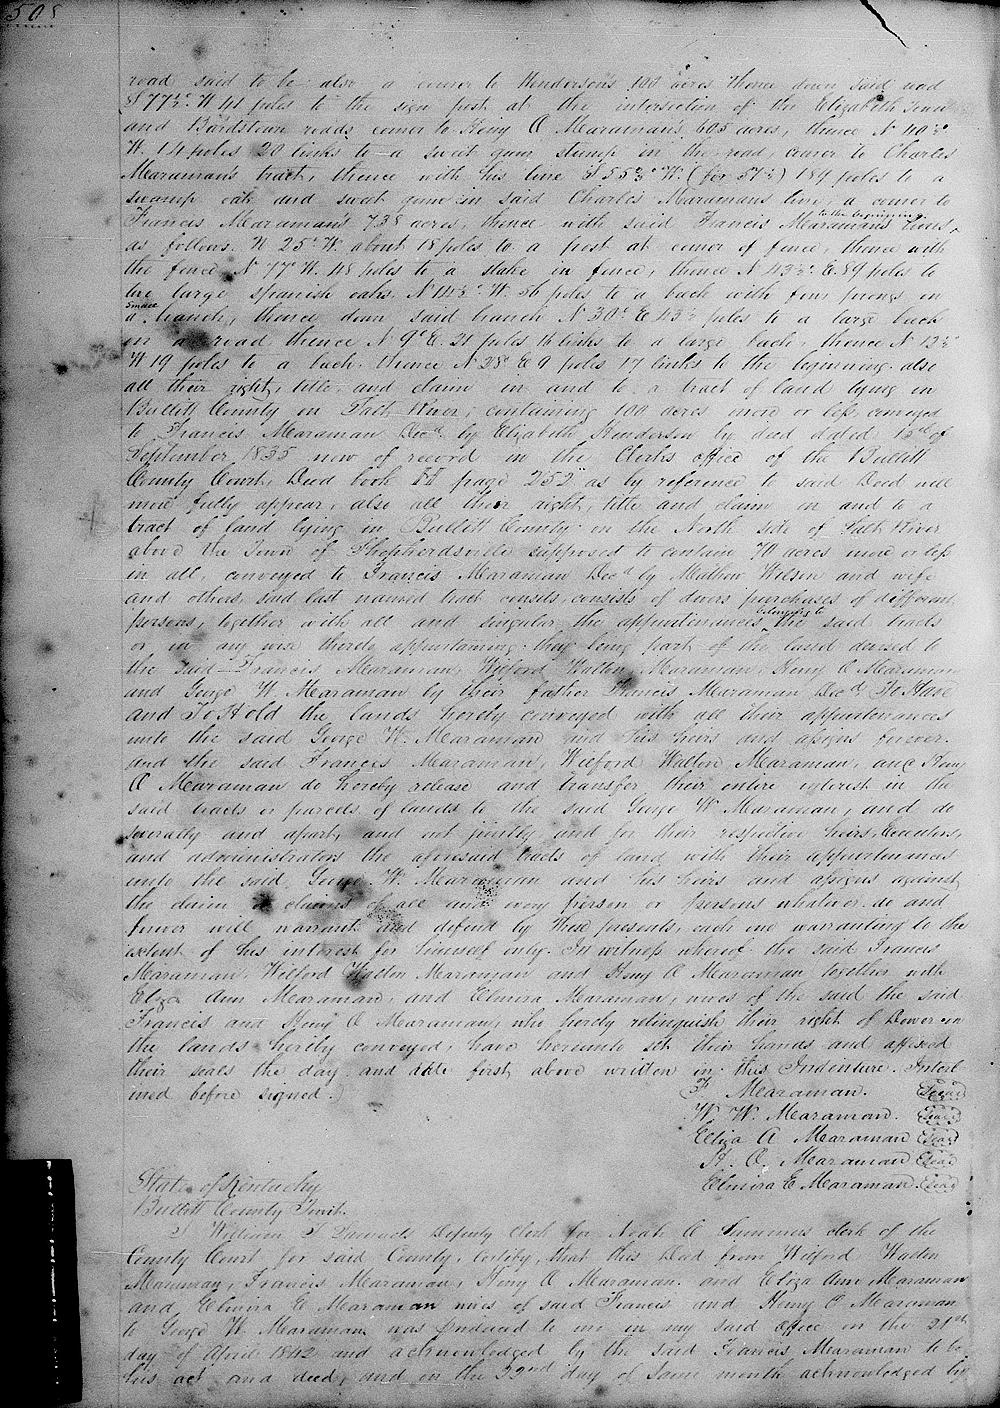 505
road said to be also a corner to Henderson's 100 acres thence down said road
S 77½° W 41 poles to the sign post at the intersection of the Elizabeth Town
and Bardstown roads corner to Henry O Maraman's 605 acres, thence N 40½°
W. 14 poles 20 links to a sweet gum stump in the road, corner to Charles
Maraman's tract, thence with his line S 55¾° W. (for 57½) 189 poles to a
swamp oak and sweet gum in said Charles Maraman's line, a corner to
to the beginning
Francis Maraman's 738 acres, thence with said Francis Maraman's lines,
as follows. N 25° W. about 18 poles to a post at corner of fence, thence with
the fence N 77° W. 48 poles to a stake in fence, thence N 43½° E. 89 poles to
two large spanish oaks N 14½° W. 56 poles to a beech with four prongs in
small
a branch, thence down said branch N 30° E 43½ poles to a large beech
in a road thence N 9° E. 21 poles 16 links to a large beech, thence N 12½°
W 19 poles to a beech thence N 28° E 9 poles 17 links to the beginning. also
all their right, title and claim in and to a tract of land lying in
Bullitt County on Salt River, containing 100 acres more or less conveyed
to Francis Maraman Decd. by Elizabeth Henderson by deed dated of
September 1835 now of record in the Clerks office of the Bullitt
County Court, Deed book page 252 as by reference to said Deed will
more fully appear, also all their right, title and claim in and to a
tract of land lying in Bullitt County on the North side of Salt River
above the Town of Shepherdsville supposed to contain 70 acres more or less
in all, conveyed to Francis Maraman Decd by Mathew Wilson and wife
and others, said last named tract consists, consists of divers purchases of different
belonging to
persons, together with all and singular the appurtenances, the said tracts
or in any wise thereto appertaining. they being part of the land devised to
the said Francis Maraman, Wilford Walton Maraman, Henry O Maraman
and George W. Maraman by their father Francis Maraman Decd. To Have
and To Hold the lands hereby conveyed with all their appurtenances
unto the said George W. Maraman and his heirs and assigns forever.
and the said Francis Maraman, Wilford Walton Maraman, and Henry
O Maraman do hereby release and transfer their entire interest in the
said tracts or parcels of lands to the said George W Maraman, and do
severally and apart, and not jointly, and for their respective heirs, Executors,
and administrators the aforesaid tracts of land with their appurtenances
unto the said George W. Maraman and his heirs and assigns against
the claim or claims of all and every person or persons whatever do and
forever will warrant and defend by these presents, each one warranting to the
extent of his interest for himself only. In witness whereof the said Francis
Maraman, Wilford Walton Maraman and Henry O Maraman, together with
Eliza Ann Maraman, and Elmira Maraman, wives of the said the said
Francis and Henry O Maraman, who hereby relinquish their right of Dower in
the lands hereby conveyed, have hereunto set their hands and affixed
their seals the day and date first above written in this Indenture. Interl-
ined before signed.
F Maraman. Seal
W. W. Maraman. Seal
Eliza A Maraman Seal
H. O. Maraman Seal
Elmira E Maraman. Seal
State of Kentucky
Bullitt County Towit.
I William T Deputy Clerk for Noah C Summers clerk of the
County Court for said County, certify, that this Deed from Wilford Walton
Maraman, Francis Maraman, Henry O Maraman. and Eliza Ann Maraman
and Elmira E Maraman wives of said Francis and Henry O Maraman
to George W. Maraman was produced to me in my said office on the 21st
day of April 1842 and acknowledged by the said Francis Maraman to be
his act and deed, and on the 22nd day of same month acknowledged by